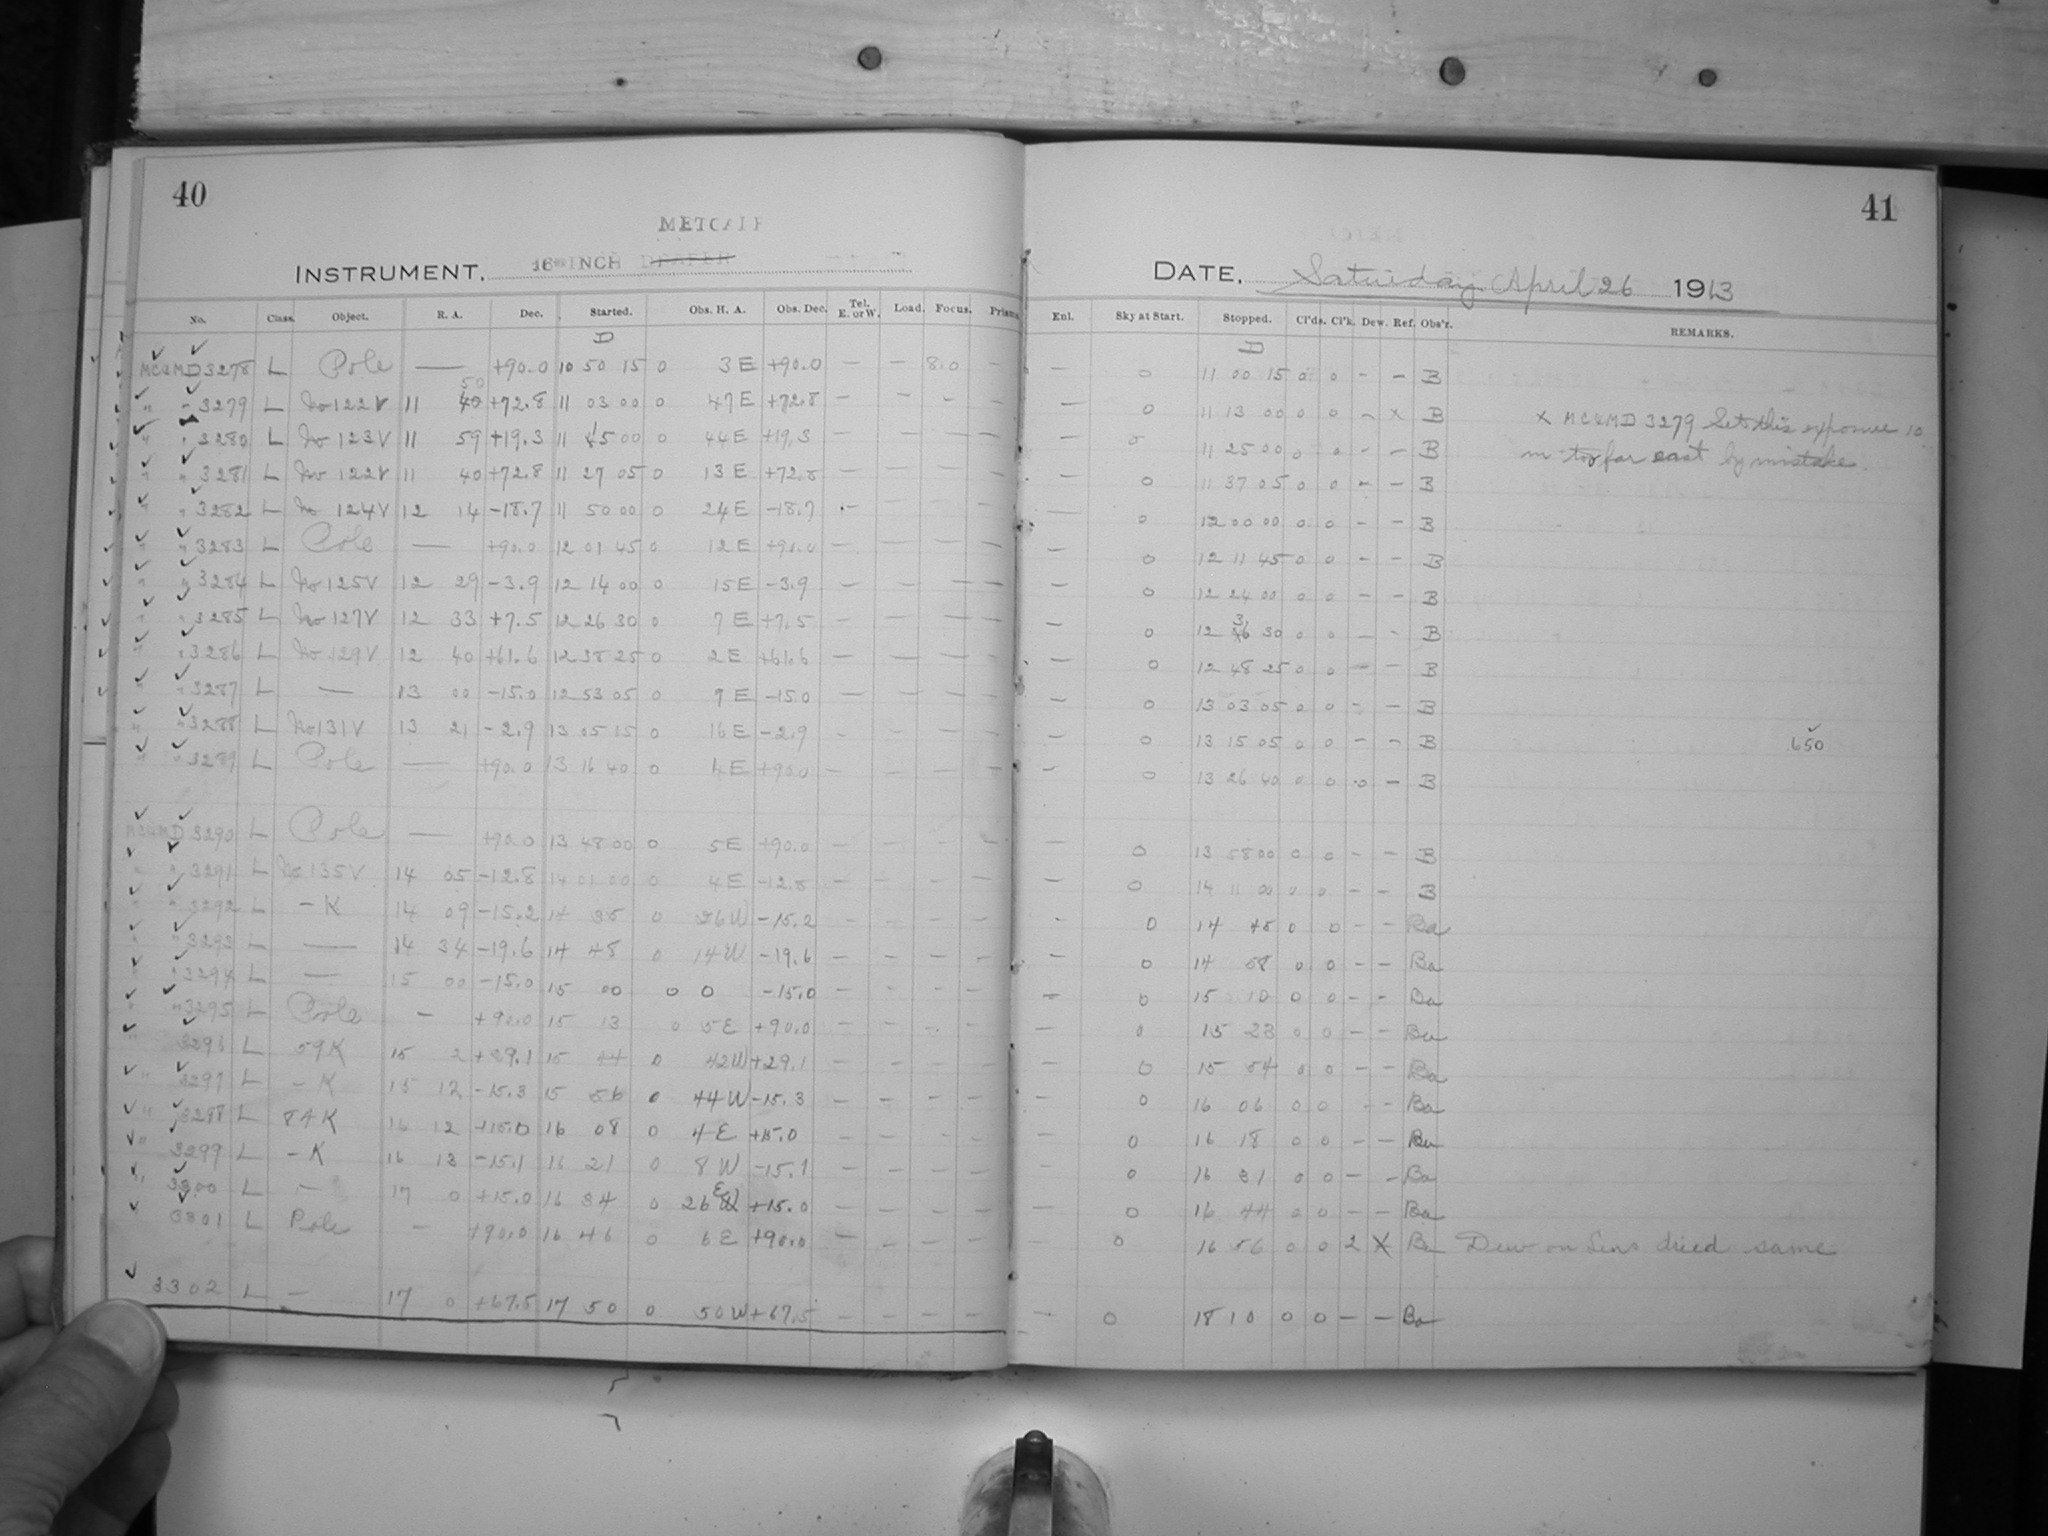 40
METCALF
INSTRUMENT, 16 INCH DRAPER
No. Class. Object. R. A. Dec. Started. Obs. H. A. Obs. Dec. Tel. E. or W. Load. Focus. Prism.
D
MC&MD 3278 L Pole — +90.0 10 50 15 0 3 E +90.0 — — 8.0 —
50
" " 3279 L No 122V 11 40 +72.8 11 03 00 0 47 E +72.8 — — — —
" " 3280 L No 123V 11 59 +19.3 11 15 00 0 44 E +19.3 — — — —
" " 3281 L No 122V 11 40 +72.8 11 27 05 0 13 E +72.8 — — — —
" " 3282 L No 124V 12 14 -18.7 11 50 00 0 24 E -18.7 — — — —
" " 3283 L Pole — +90.0 12 01 45 0 12 E +90.0 — — — —
" " 3284 L No 125V 12 29 -3.9 12 14 00 0 15 E -3.9 — — — —
" " 3285 L No 127V 12 33 +7.5 12 26 30 0 7 E +7.5 — — — —
" " 3286 L No 129V 12 40 +61.6 12 38 25 0 2 E +61.6 — — — —
" " 3287 L — 13 00 -15.0 12 53 05 0 7 E -15.0 — — — —
" " 3288 L No 131V 13 21 -2.9 13 05 15 0 16 E -2.9 - — — —
" " 3289 L Pole — +90.0 13 16 40 0 4 E +90.0 — — — —
MC&MD 3290 L Pole — +90.0 13 48 00 0 5 E +90.0 — — — —
" " 3291 L No 135V 14 05 -12.8 14 01 00 0 4 E -12.8 — — — —
" " 3292 L - K 14 09 -15.2 14 35 0 26 W -15.2 — — — —
" " 3293 L — 14 34 -19.6 14 48 0 14 W -19.6 — — — —
" " 3294 L — 15 00 -15.0 15 00 0 0 -15.0 — — — —
" " 3295 L Pole - +90.0 15 13 0 5 E +90.0 — — — —
" 3296 L 59 K 15 2 +29.1 15 44 0 42 W +29.1 — — — —
" 3297 L - K 15 12 -15.3 15 56 0 44 W -15.3 — — — —
" 3298 L 84 K 16 12 +15.0 16 08 0 4 E +15.0 — — — —
" 3299 L - K 16 13 -15.1 16 21 0 8 W -15.1 — — — —
" 3300 L — 17 0 +15.0 16 34 0 26 E +15.0 — — — —
3301 L Pole - +90.0 16 46 0 6 E +90.0 — — — —
3302 L — 17 0 +67.5 17 50 0 50 W +67.5 — — — —
41
DATE, Saturday April 26 1913
Enl. Sky at Start. Stopped. Cl'ds. Cl'k. Dew. Ref. Obs'r. REMARKS.
D
— 0 11 00 15 0 0 - - B
— 0 11 13 00 0 0 - x B x MC&MD 3279 Set this exposure 10
— 0 11 25 00 0 0 - - B m too far east by mistake.
— 0 11 37 05 0 0 - - B
— 0 12 00 00 0 0 - - B
— 0 12 11 45 0 0 - - B
— 0 12 24 00 0 0 - - B
— 0 12 36 30 0 0 - - B
— 0 12 48 25 0 0 - - B
— 0 13 03 05 0 0 - - B
— 0 13 15 05 0 0 - - B 650
— 0 13 26 40 0 0 0 - B
— 0 13 58 00 0 0 - - B
— 0 14 11 00 0 0 - - B
- 0 14 45 0 0 - - Ba
— 0 14 58 0 0 - - Ba
— 0 15 10 0 0 - - Ba
— 0 15 23 0 0 - - Ba
— 0 15 54 0 0 - - Ba
— 0 16 06 0 0 - - Ba
— 0 16 18 0 0 - - Ba
— 0 16 31 0 0 - - Ba
— 0 16 44 0 0 - - Ba
— 0 16 56 0 0 2 X Ba Dew on Lens dried same
— 0 18 10 0 0 - - Ba